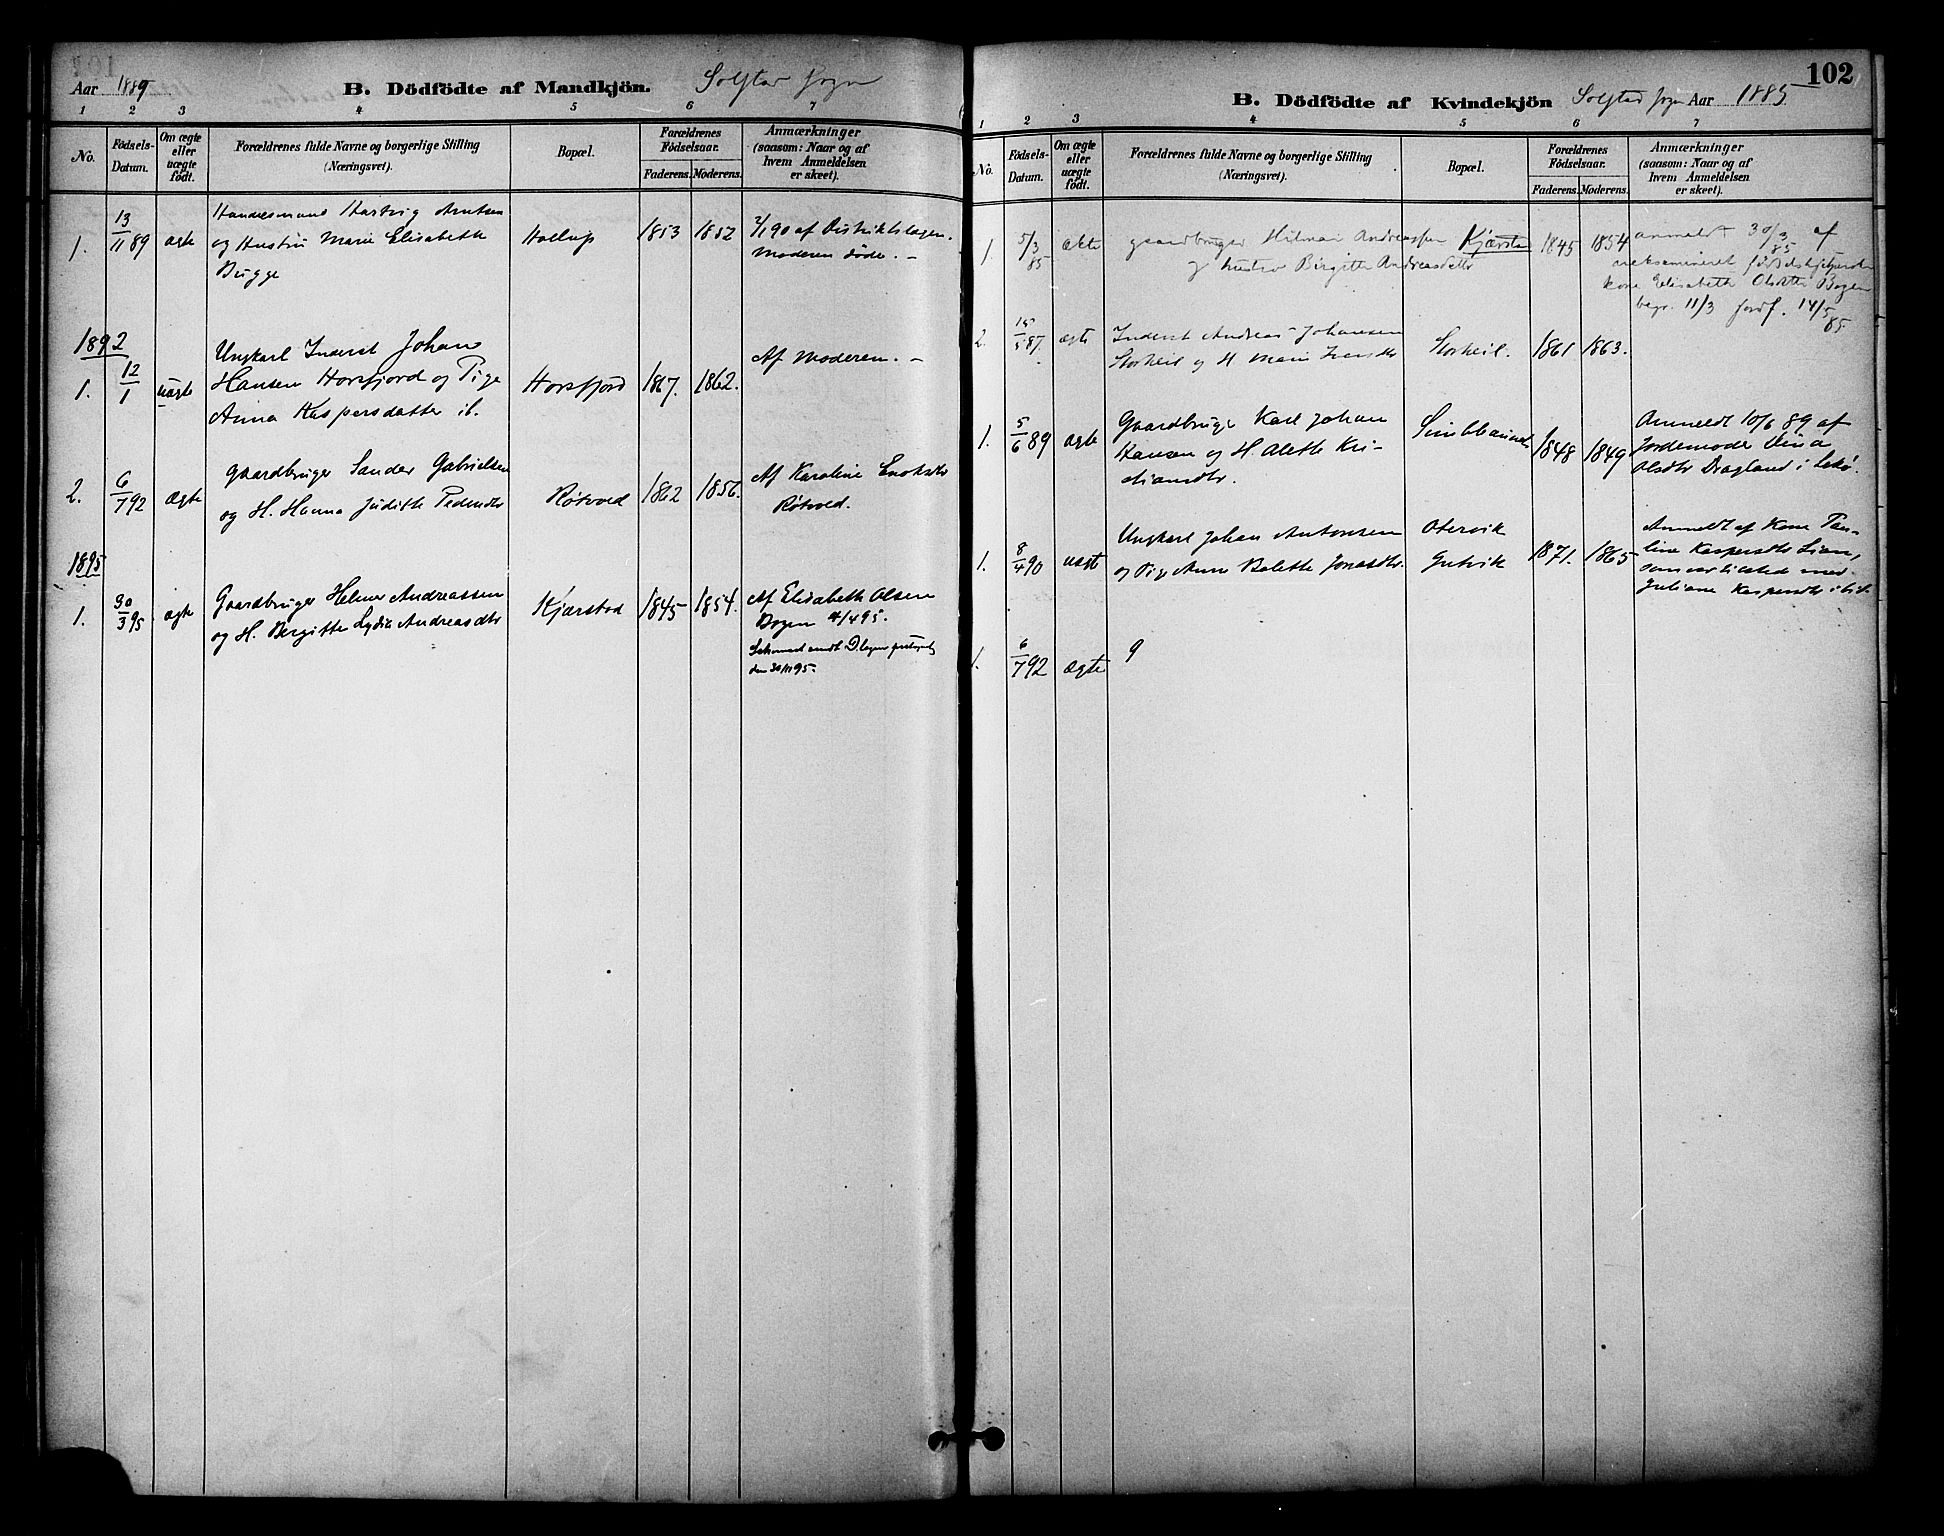 Aar 1889 B. Dödfödte af Mandkjön. Solstad Sogn
1 2 3 4 5 6 7
No. Födsels-Datum. Om ægte eller uægte födt. Forældrenes fulde Navne og borgerlige Stilling (Næringsvei). Bopæl. Forældrenes Födselsaar. Faderens. Moderens. Anmærkninger (saasom: Naar og af hvem Anmeldelsen er skeet).
Handelsmand Hartvig Arntsen
1. 13/11 89 ægte og Hustru Marie Elisabeth Hollup 1853 1852 2/1 90 af Distriktslægen.
Bugge Moderen döde. —
1892
Ungkarl Inderst Johan Af Moderen. —
1. 12/1 uægte Hansen Horsfjord og Pige Horsfjord 1867. 1862.
Anna Kaspersdatter ib.
Gaardbruger Sander Gabrielsen Af Karoline Enoksdtr
2. 6/7 92 Ægte og H. Hanna Judith Pedersdtr Røtvold 1862 1856. Røtvold.
1895
Gaardbruger Helmer Andreassen Af Elisabeth Olsen
1. 30/3 95 ægte og H. Bergitte Lydia Andreasdtr Kjærstad 1845 1854. Bogen 4/4 95.
Schemaet sendt D.lægen
den 30/11 95.
102
B. Dödfödte af Kvindekjön Solstad Sogn Aar 1885
1 2 3 4 5 6 7
No. Födsels-Datum. Om ægte eller uægte födt. Forældrenes fulde Navne og borgerlige Stilling (Næringsvei). Bopæl. Forældrenes Födselsaar. Faderens. Moderens. Anmærkninger (saasom: Naar og af hvem Anmeldelsen er skeet).
1. 5/3 85 ækte gaardbruger Hilmar Andreassen Kjærstad 1845 1854 anmeldt 30/3 85 af
og hustro Birgitte Andreasdatter uexamineret
kone Elisabeth Olsdtr Bogen
begr. 11/3 jordf. 14/5 85
2. 15/5 87. ægte Inderst Andreas Johansen
Storheil og H. Marie Storheil. 1861 1863.
Gaardbruger Karl Johan Anmeldt 10/6 89 af
1. 5/6 89 ægte Hansen og H. Alette Kri- 1848 1849 Jordemoder Dina
stiansdtr. Olsdtr Dragland i Lekø.
Ungkarl Johan Antonsen Otervik Anmeldt af Kone Pau-
1. 8/4 90 uægte og Pige Anne Bolette Jonasdtr. Gutvik 1871. 1865 line Kaspersdtr Lian,
som var tilsted med
Juliane Kaspersdtr ibid.
1. 6/7 92 Ægte 9